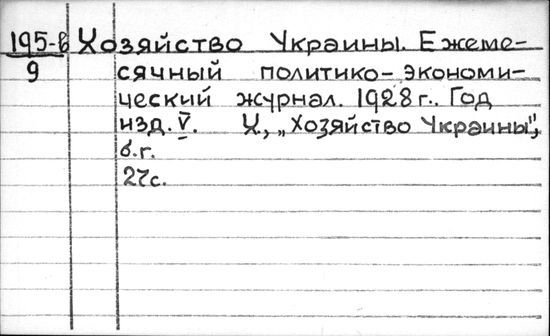 195-в Хозяйство Украины. Ежеме-
9 сячный политико-экономи-
ческий журнал. 1928 г.. Год
изд. V. Х., „Хозяйство Украины",
б.г.
27с.